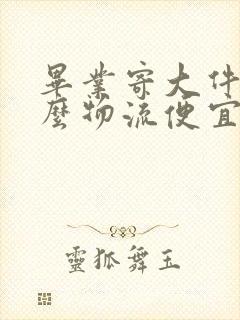 畢業寄大件
麼物流便宜
靈狐舞玉